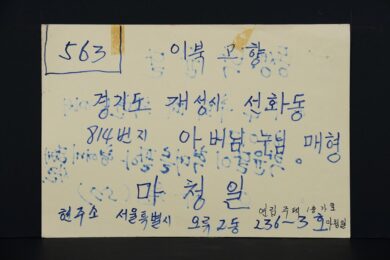 563
이북 고향
경기도 개성시 선화동
814번지 아버님 누님. 매형
마청일
현주소 서울특별시 오류2동 236-3호
연립주택